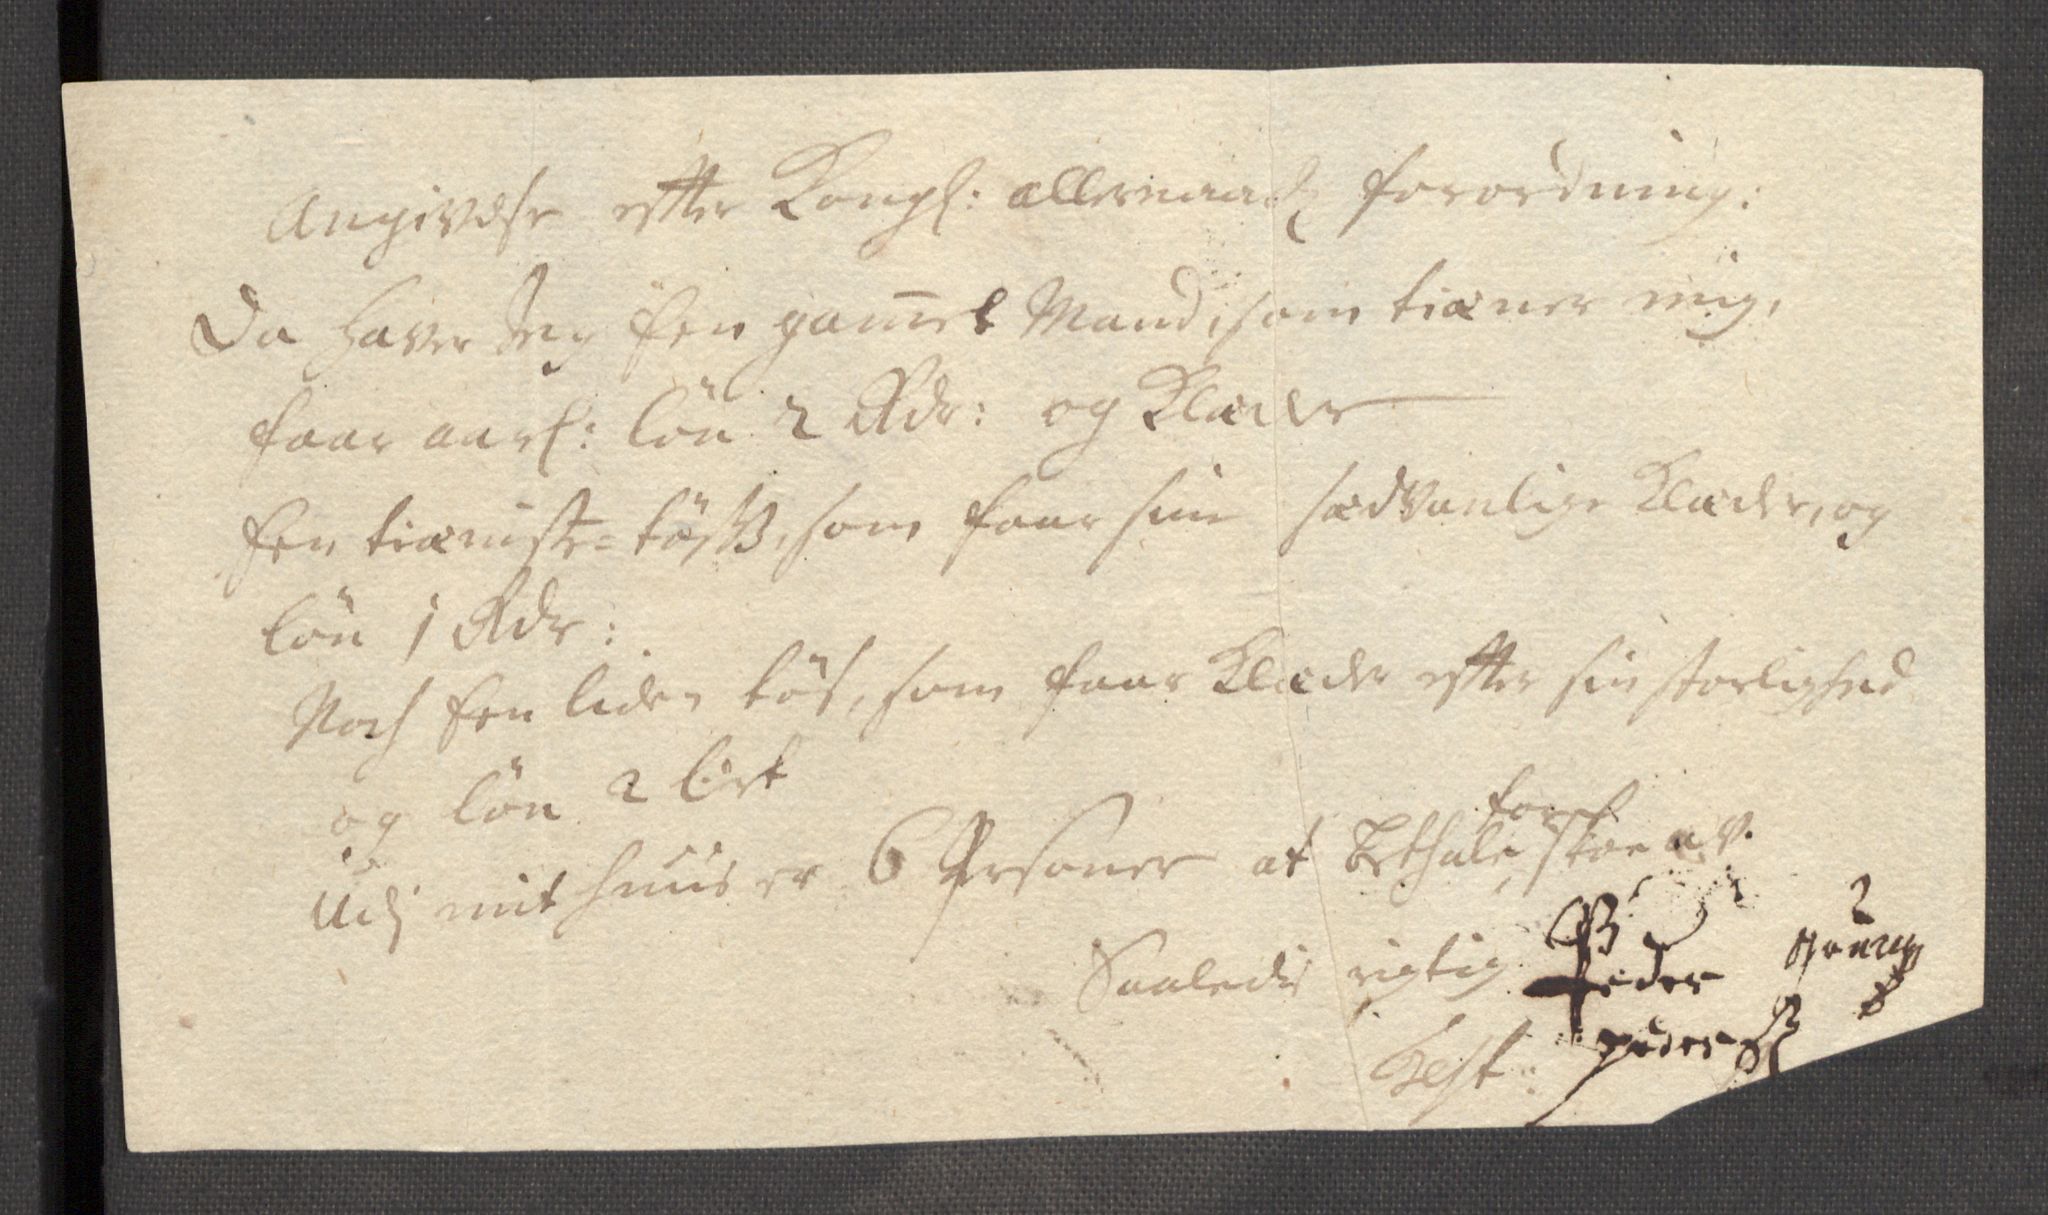 Angivelse efter Kongl: allernaad: forordning:
Da haver Jeg Een gam̄el Mand, som tiæner mig,
faar aarl: lön 2 Rdr: og Klæder
Een tiæniste-töss, som faar sine sædvanlige Klæder, og
lön 1 Rdr:
Noch Een liden tös, som faar Klæder efter sin storlighed
og lön 2 ort
Udj mit huus er 6 Persohner at bethale skoe av.
for
Saaledis rigtig Peder
test: